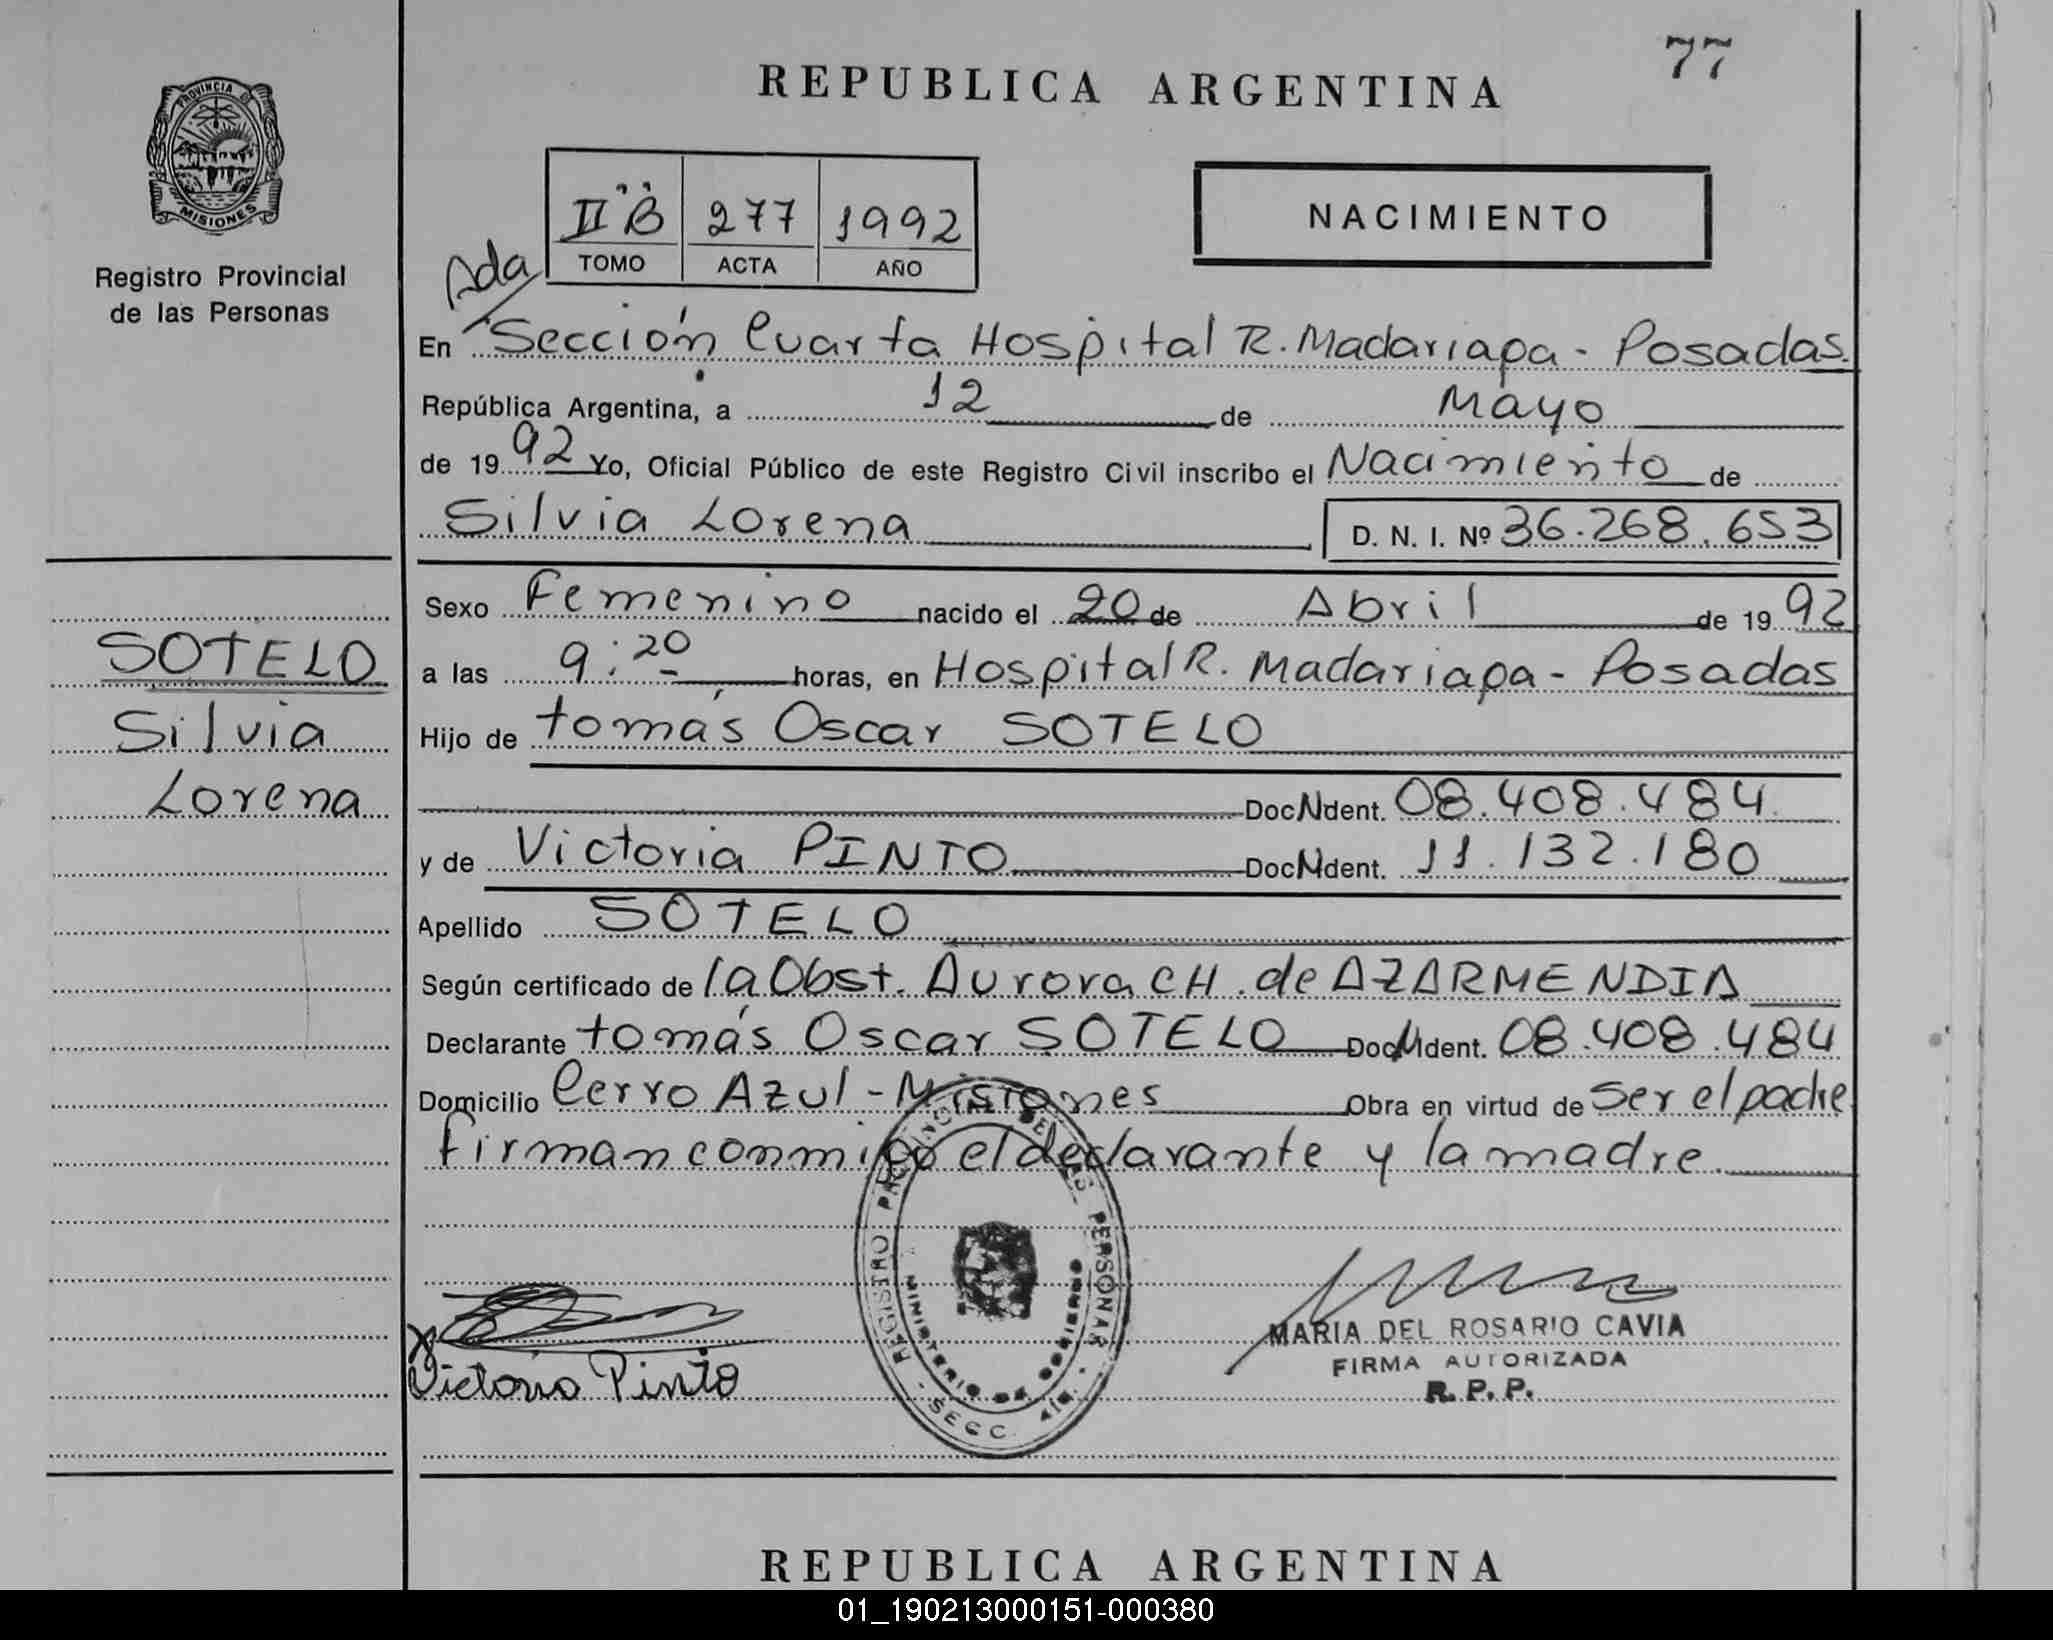 77
REPUBLICA ARGENTINA
PROVINCIA DE
MISIONES
Registro Provincial
de las Personas
II "B" 277 1992
TOMO ACTA AÑO
NACIMIENTO
Ada
En Sección Cuarta Hospital R. Madariaga - Posadas.
República Argentina, a 12 de Mayo
de 1992 Yo, Oficial Público de este Registro Civil inscribo el Nacimiento de
Silvia Lorena D. N. I. Nº 36.268.653
Sexo Femenino nacido el 20 de Abril de 1992
SOTELO
Silvia
Lorena
a las 9:20 horas, en Hospital R. Madariaga - Posadas
Hijo de tomás Oscar SOTELO
Doc. N dent. 08.408.484
y de Victoria PINTO Doc. N dent. 11.132.180
Apellido SOTELO
Según certificado de la Obst. Aurora CH. de AZARMENDIA
Declarante tomás Oscar SOTELO Doc. N dent. 08.408.484
Domicilio Cerro Azul - Misiones Obra en virtud de ser el padre
firman conmigo el declarante y la madre.
REGISTRO PROVINCIAL DE LAS PERSONAS
MINISTERIO DE GOBIERNO
SECC. 4ta.
Victoria Pinto
MARIA DEL ROSARIO CAVIA
FIRMA AUTORIZADA
R. P. P.
REPUBLICA ARGENTINA
01_190213000151-000380